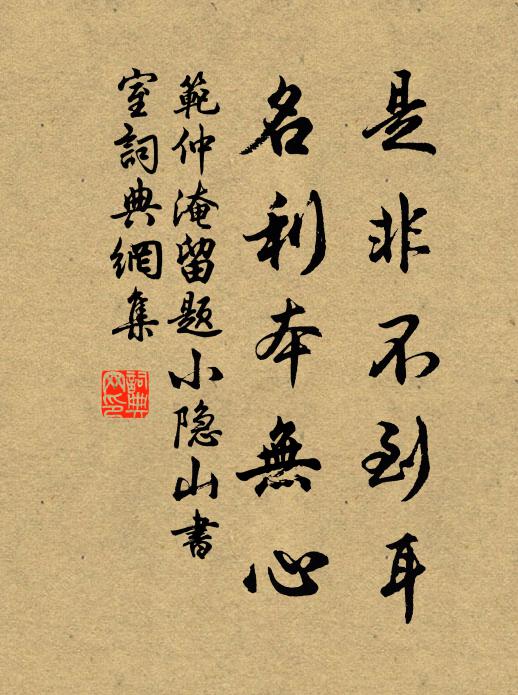 是非不到耳
名利本無心
範仲淹留題小隐山書
室詞典網集
詞典
网印